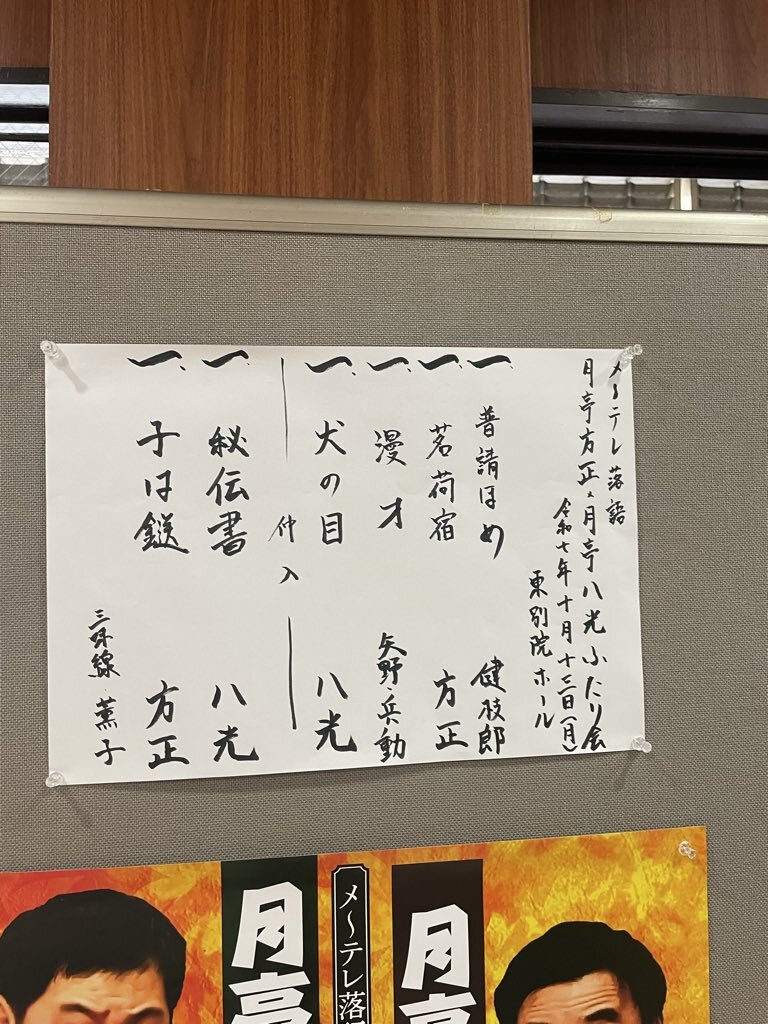 メ〜テレ落語
月亭方正&月亭八光ふたり会
令和七年十月十三日(月)
東別院ホール
一、普請ほめ 健枝郎
一、茗荷宿 方正
一、漫才 矢野・兵動
一、犬の目 八光
仲入
一、秘伝書 八光
一、子は鎹 方正
三味線 薫子
月亭
メ〜テレ落
月亭